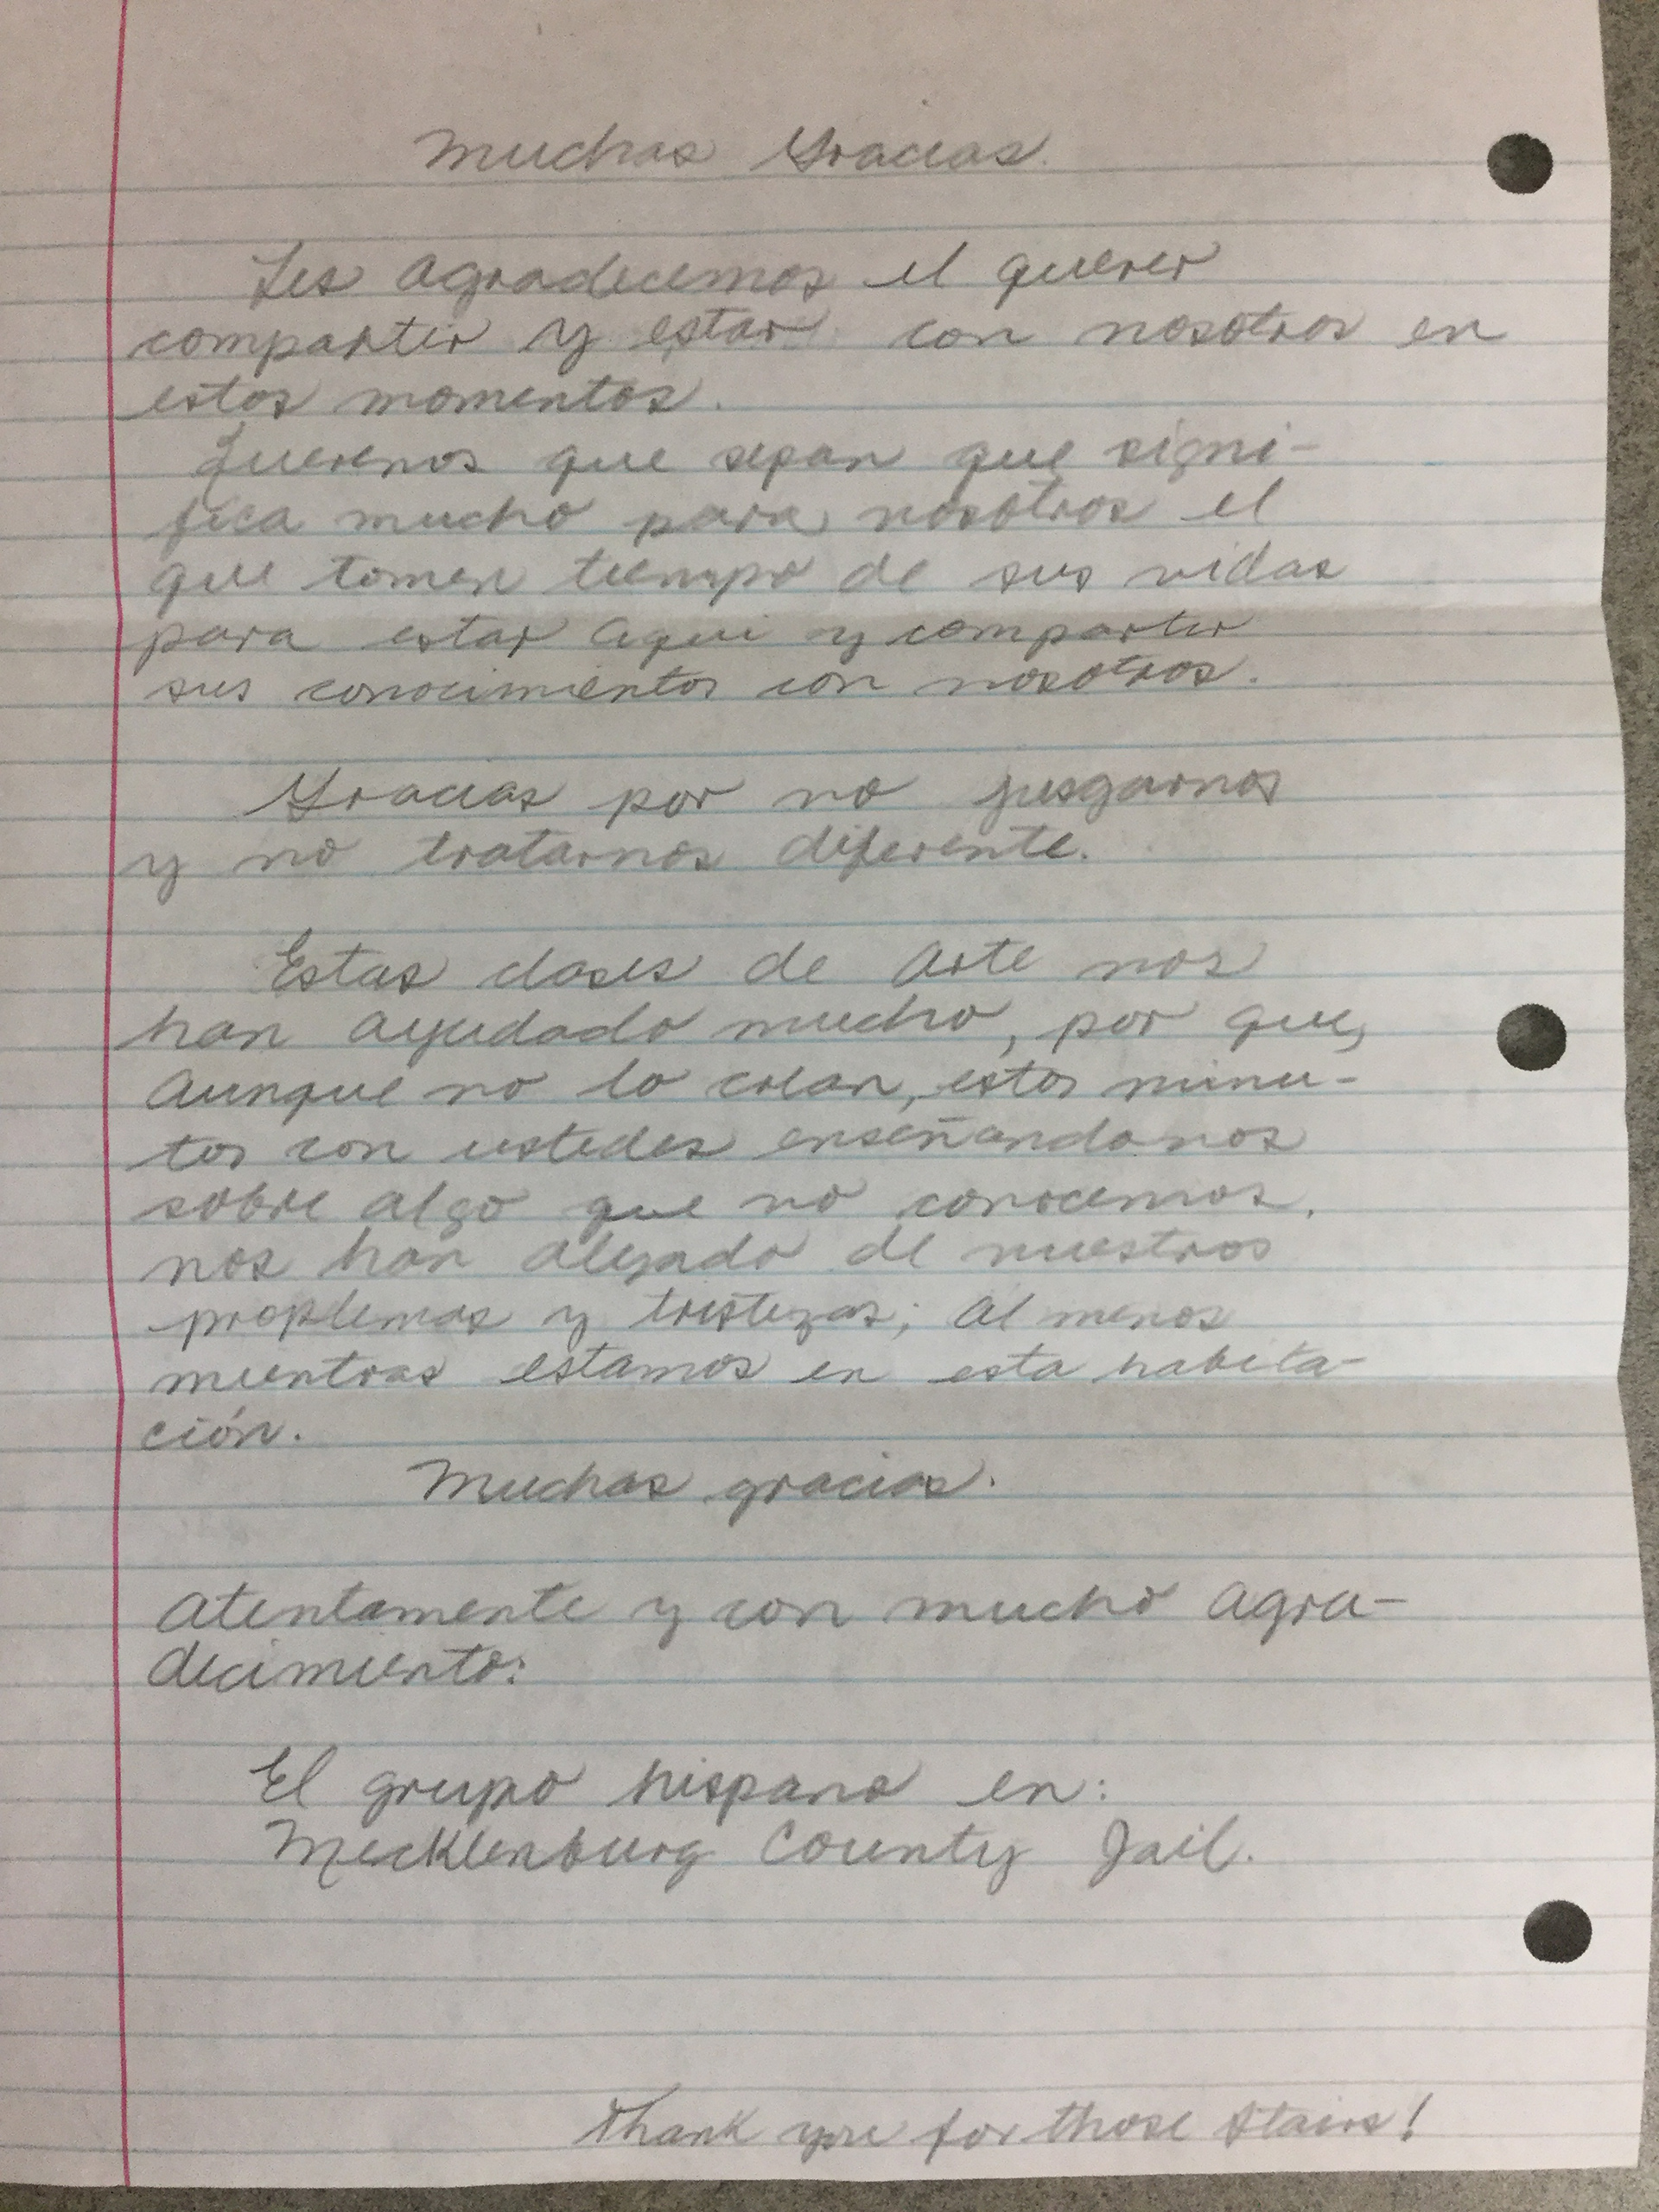 Muchas Gracias.
Les agradecemos el querer
compartir y estar con nosotros en
estos momentos.
Queremos que sepan que signi-
fica mucho para nosotros el
que tomen tiempo de sus vidas
para estar aqui y compartir
sus conocimientos con nosotros.
Gracias por no jusgarnos
y no tratarnos diferente.
Estas clases de arte nos
han ayudado mucho, por que,
aunque no lo crean, estos minu-
tos con ustedes enseñandonos
sobre algo que no conocemos,
nos han alejado de nuestros
problemas y tristezas; al menos
mientras estamos en esta habita-
ción.
Muchas gracias.
Atentamente y con mucho agra-
decimiento:
El grupo hispano en:
Mecklenburg County Jail.
Thank you for those stairs!